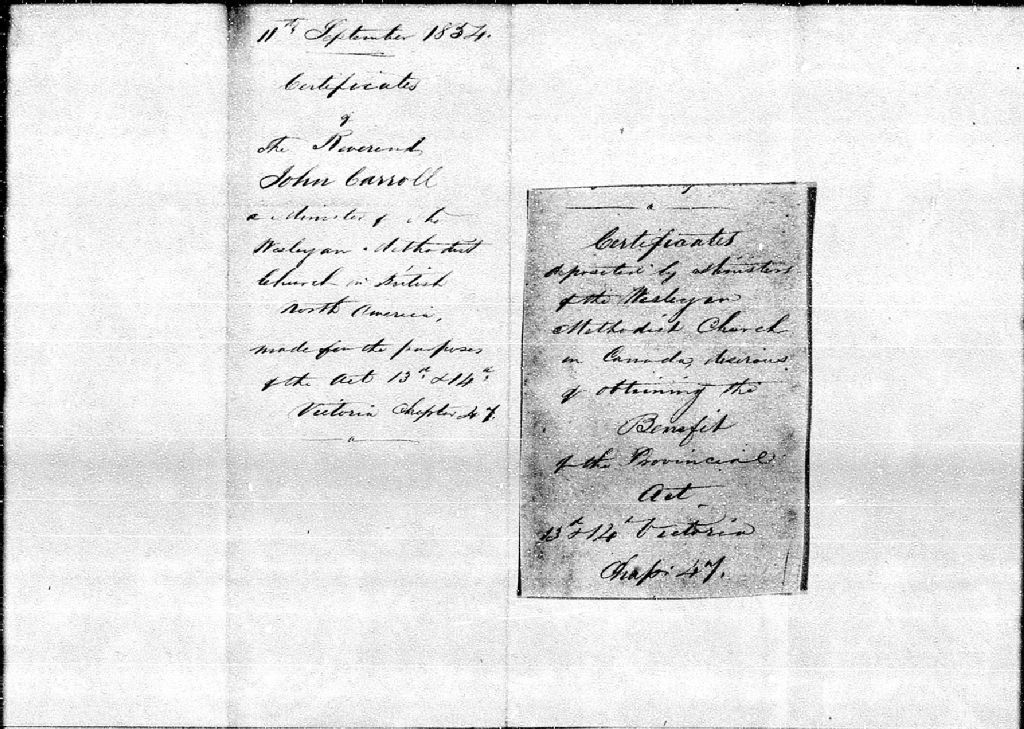 11th September 1854.
Certificates
of
The Reverend
John Carroll
a Minister of the
Wesleyan Methodist
Church in British
North America,
made for the purposes
of the Act 13th & 14th
Victoria Chapter 47.
Certificates
deposited by Ministers
of the Wesleyan
Methodist Church
in Canada, desirous
of obtaining the
Benefit
of the Provincial
Act
13th & 14th Victoria
Chap: 47.